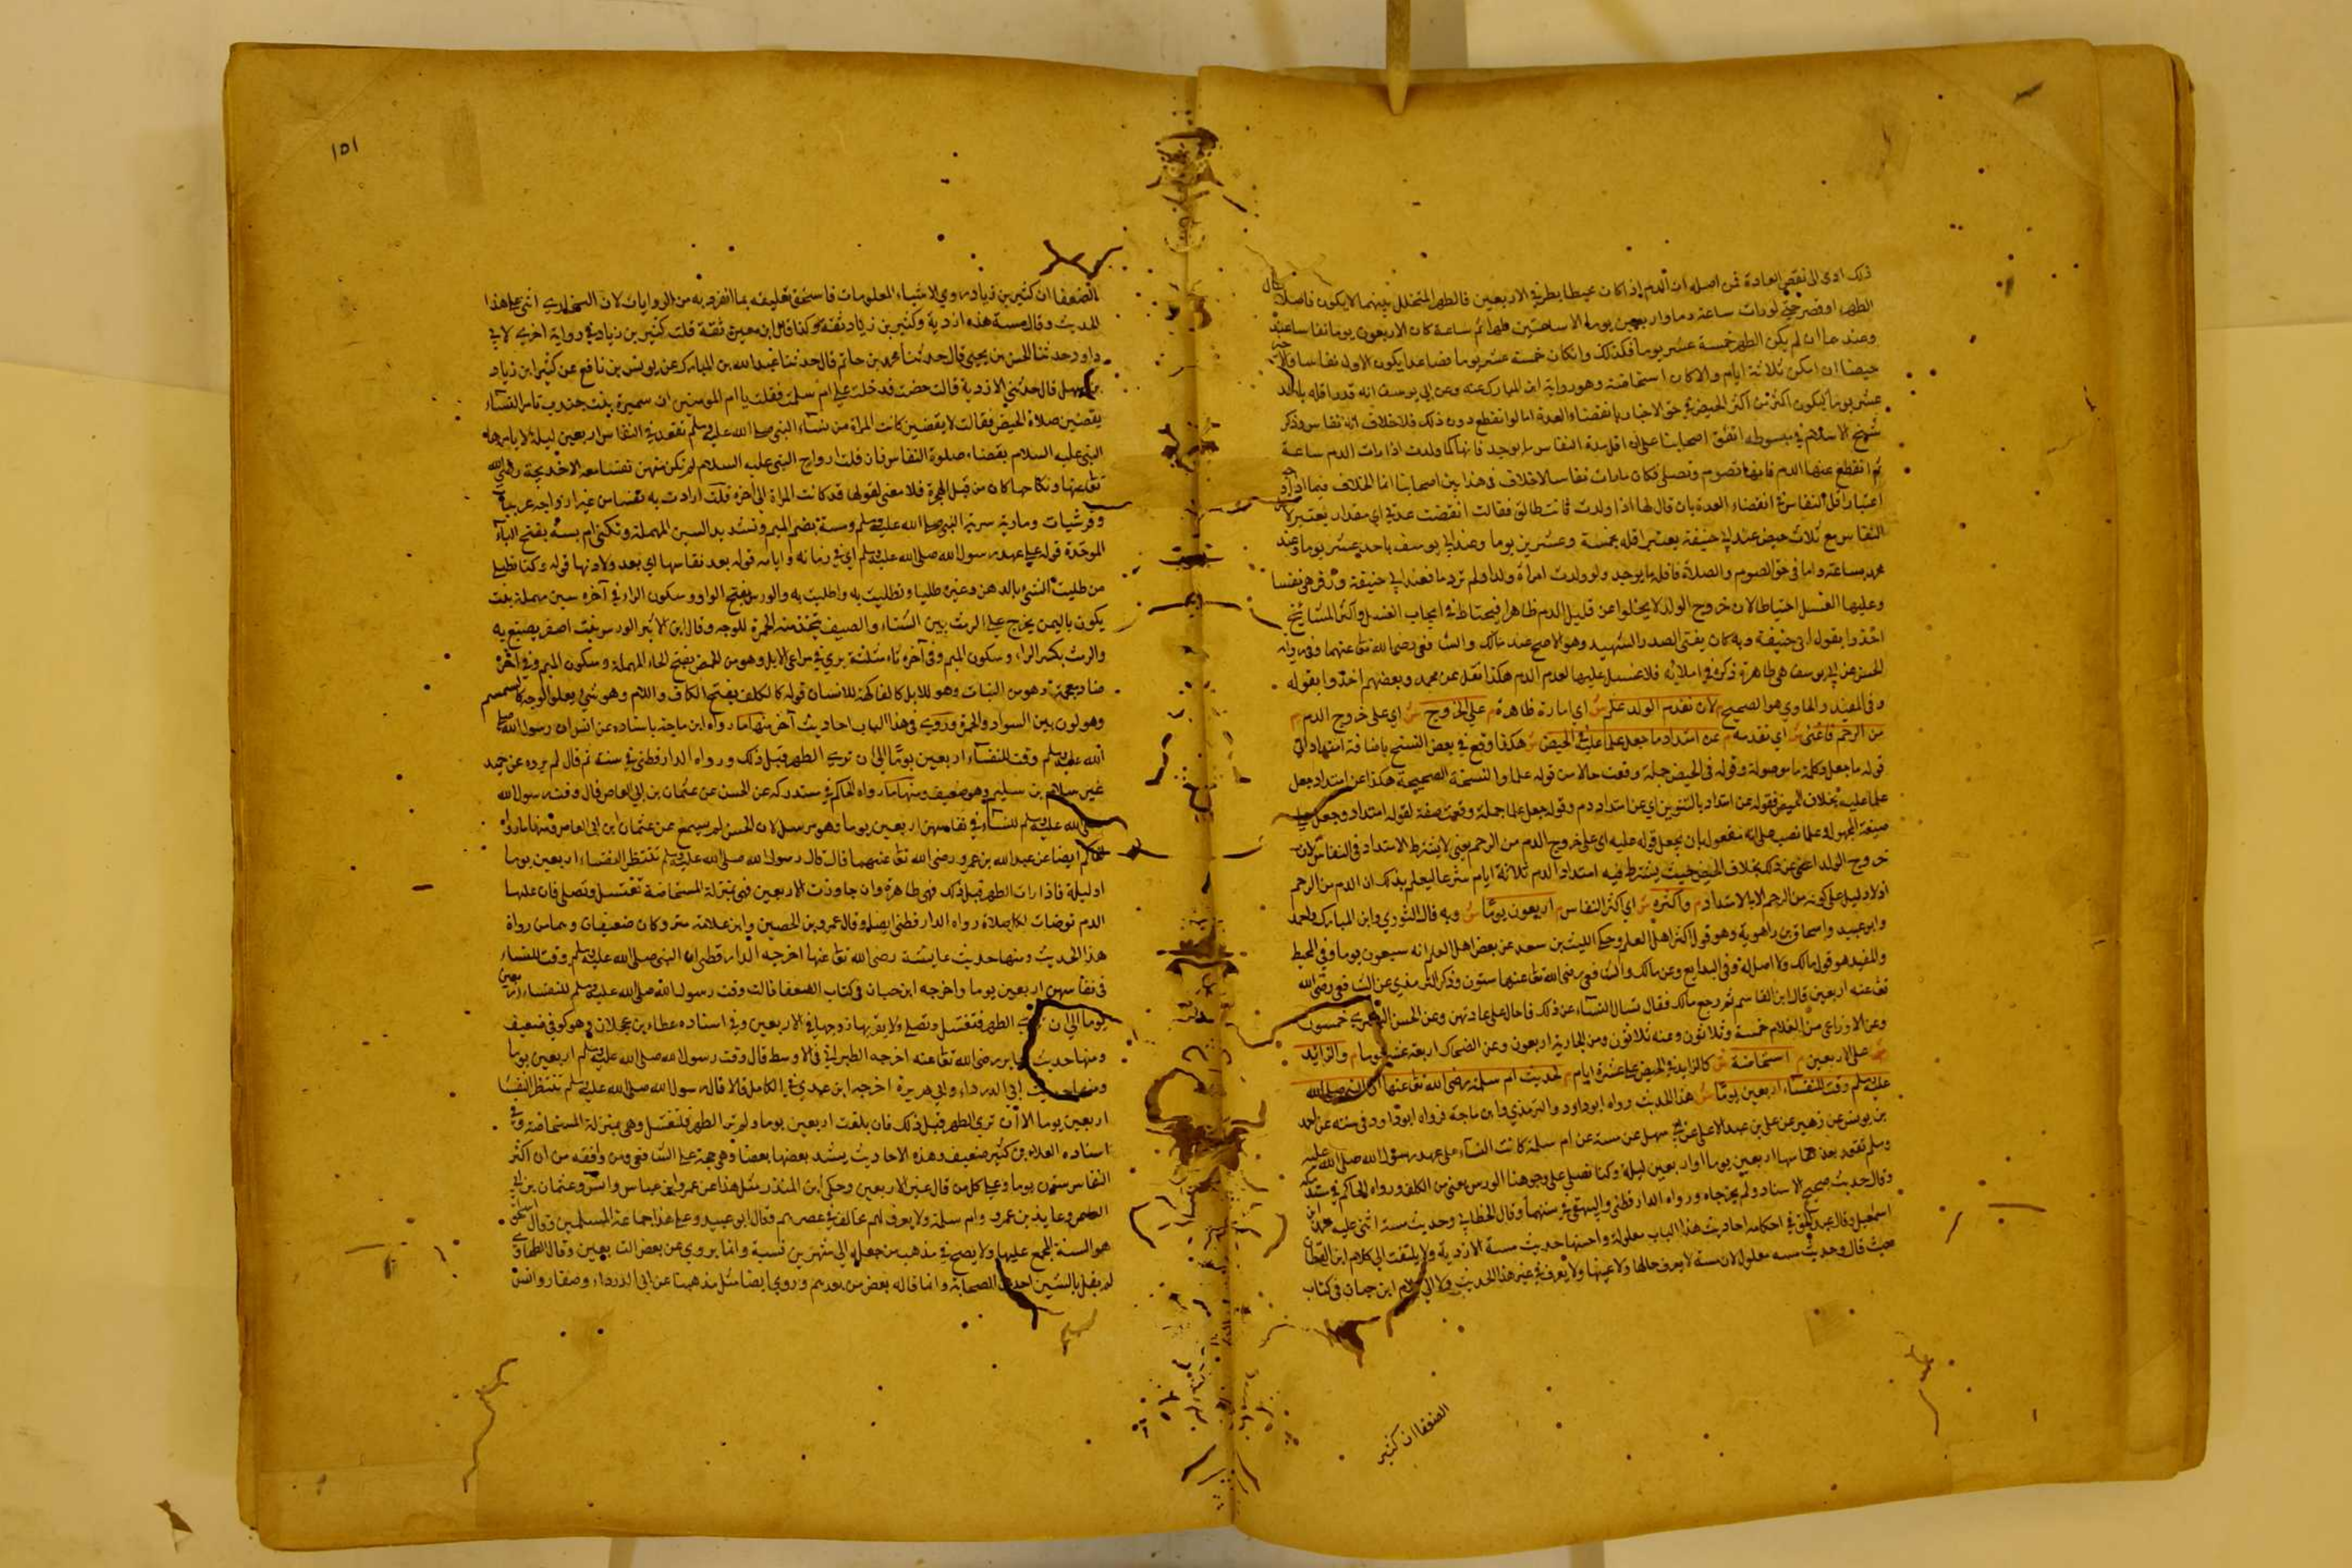 ذلك ادى الى نقص العادة فمن اصله ان الدم اذا كان محيطا بطرفي الاربعين فالطهر المتخلل بينهما لا يكون فاصلا طال
الطهر او قصر حتى لو رات ساعة دما واربعين يوما الا ساعتين طهرا ثم ساعة كان الاربعون يوما نفاسا عنده
وعندهما ان لم يكن الطهر خمسة عشر يوما فكذلك وان كان خمسة عشر يوما فصاعدا يكون الاول نفاسا والآخر
حيضا ان امكن ثلاثة ايام والا كان استحاضة وهو رواية ابن المبارك عنه وعن ابي يوسف انه قدر اقله باحد
عشر يوما ليكون اكثر من اكثر الحيض في حق الاخبار بانقضاء العدة اما لو انقطع دون ذلك فلا خلاف انه نفاس وذكر
شيخ الاسلام في مبسوطه اتفق اصحابنا على ان اقل مدة النفاس ما يوجد فانها كما ولدت اذا رات الدم ساعة
ثم انقطع عنها الدم فانها تصوم وتصلي فكان ما رات نفاسا لا خلاف في هذا بين اصحابنا انما الخلاف فيما اذا وجب
اعتبار اقل النفاس في انقضاء العدة بان قال لها اذا ولدت فانت طالق فقالت انقضت عدتي اي مقدار يعتبر لاقل
النفاس مع ثلاث حيض عند ابي حنيفة يعتبر اقله بخمسة وعشرين يوما وعند ابي يوسف باحد عشر يوما وعند
محمد ساعة واما في حق الصوم والصلاة فاقله ما يوجد ولو ولدت امراة ولدا ولم تر دما فعند ابي حنيفة وزفر هي نفسا
وعليها الغسل احتياطا لان خروج الولد لا يخلوا عن قليل الدم ظاهرا فيحتاط في ايجاب الغسل واكثر المشائخ
اخذوا بقول ابي حنيفة وبه كان يفتى الصدر الشهيد وهو الاصح عند مالك والشافعي رضي الله تعا عنهما وفي رواية
الحسن عن ابي يوسف هي طاهرة ذكره في املائه فلا غسل عليها لعدم الدم هكذا نقل عن محمد وبعضهم اخذوا بقوله
وفي المفيد والحاوي هو الصحيح م لان تقدم الولد علم ش اي امارة ظاهرة م على الخروج ش اي على خروج الدم م
من الرحم فاغنى ش اي تقدمه م عن امتداد ما جعل علما عليه في الحيض ش هكذا وقع في بعض النسخ باضافة امتداد الى
قوله ما جعل وكلمة ما موصولة وقوله في الحيض جملة وقعت حالا من قوله علما والنسخة الصحيحة هكذا عن امتداد جعل
علما عليه بخلاف الحيض فقوله عن امتداد بالتنوين اي عن امتداد دم وقوله جعل علما جملة وقعت صفة لقوله امتداد وجعل على
صيغة المجهول وعلما نصب على انه مفعول بان يجعل قوله عليه اي على خروج الدم من الرحم يعني لا يشترط الامتداد في النفاس لان
خروج الولد اغنى عن ذلك بخلاف الحيض حيث يشترط فيه امتداد الدم ثلاثة ايام شرعا ليعلم بذلك ان الدم من الرحم
اذ لا دليل على كونه من الرحم الا بالامتداد م واكثره ش اي اكثر النفاس م اربعون يوما ش وبه قال الثوري وابن المبارك واحمد
وابو عبيد واسحاق بن راهوية وهو قول اكثر اهل العلم وحكى الليث بن سعد عن بعض اهل العلم انه سبعون يوما وفي المحيط
والمفيد هو قول مالك ولا اصل له وفي البدايع وعن مالك والشافعي رضي الله تعا عنهما ستون وذكر الترمذي عن الشافعي رضى الله
تعا عنه اربعين قال ابن القاسم ثم رجع مالك فقال تسال النساء عن ذلك فاحال على عادتهن وعن الحسن البصري خمسون
وعن الاوزاعى من الغلام خمسة وثلاثون وعنه ثلاثون ومن الجارية اربعون وعن الضحاك اربعة عشر يوما م والزايد
على الاربعين م استحاضة ش كالزايد في الحيض على عشرة ايام م لحديث ام سلمة رضى الله تعا عنها ان النبي صلى الله
عليه وسلم وقت للنفساء اربعين يوما ش هذا الحديث رواه ابو داود والترمذي وابن ماجة فرواه ابو داود في سننه عن احمد
بن يونس عن زهير عن علي بن عبد الاعلى عن ابي سهل عن مسة عن ام سلمة كانت النفساء على عهد رسول الله صلى الله عليه
وسلم تقعد بعد نفاسها اربعين يوما او اربعين ليلة وكنا نطلي على وجوهنا الورس يعني من الكلف ورواه الحاكم في مستدركه
وقال حديث صحيح الاسناد ولم يخرجاه ورواه الدارقطني والبيهقي في سننهما وقال الخطابي وحديث مسة اثنى عليه محمد بن
اسمعيل وقال عبد الحق في احكامه احاديث هذا الباب معلولة واحسنها حديث مسة الازدية ولا يلتفت الى كلام ابن القطان
حيث قال وحديث مسه معلول لان مسة لا يعرف حالها ولا عينها ولا تعرف في غير هذا الحديث ولا الى كلام ابن حبان في كتاب
الضعفا ان كثير
١٥١
الضعفا ان كثير بن زياد روي الاشياء المعلومات فاستحق تعليقه بما انفرد به من الروايات لان البخاري اثنى على هذا
الحديث وقال مسة هذه ازدية وكثير بن زياد ثقة وكذا قال ابن معين ثقة قلت كثير بن زياد في رواية اخرى لابي
داود حدثنا الحسن بن يحيى قال حدثنا محمد بن حاتم قال حدثنا عبد الله بن المبارك عن يونس بن نافع عن كثير ابن زياد
بن سهل قال حدثتني الازدية قالت حججت فدخلت على ام سلمة فقلت يا ام المومنين ان سمرة بنت جندب تامر النساء
يقضين صلاة الحيض فقالت لا يقضين كانت المراة من نساء النبي صلى الله عليه وسلم تقعد في النفاس اربعين ليلة لا يامرها
النبي عليه السلام بقضاء صلوة النفاس فان قلت ازواج النبي عليه السلام لم تكن منهن نفساء معه الا خديجة رضي الله
تعا عنها ونكاحها كان من قبل الهجرة فلا معنى لقولها قد كانت المراة الى آخره قلت ارادت به نفسا من غير ازواجه عربيات
وقرشيات ومارية سرية النبي صلى الله عليه وسلم ومسة بضم الميم وتشديد السين المهملة وتكنى ام بسة بفتح الباء
الموحدة قوله على عهد رسول الله صلى الله عليه وسلم اي في زمانه وايامه قوله بعد نفاسها اي بعد ولادتها قوله وكنا نطلي
من طليت الشئ بالدهن وغيره طليا وتطليت به واطليت به والورس بفتح الواو وسكون الراء وفي آخره سين مهملة نبت
يكون باليمن يخرج على الرمث بين الشتاء والصيف يتخذ منه الحمرة للوجه وقال ابن الاثير الورس نبت اصفر يصبغ به
والرمث بكسر الراء وسكون الميم وفي آخره ثاء مثلثة يرعى في مراعي الابل وهو من الحمض بفتح الحاء المهملة وسكون الميم وفي آخره
ضاد معجمة وهو من النبات وهو للابل كالفاكهة للانسان قوله كالكلف بفتح الكاف واللام وهو شي يعلو الوجه كالسمسم
وهو لون بين السواد والحمرة وروى في هذا الباب احاديث آخر منها ما رواه ابن ماجة باسناده عن انس ان رسول الله صلى
الله عليه وسلم وقت للنفساء اربعين يوما الا ان ترى الطهر قبل ذلك ورواه الدارقطنى في سننه ثم قال لم يروه عن حميد
غير سلام بن سليم وهو ضعيف ومنها ما رواه الحاكم في مستدركه عن الحسن عن عثمان بن ابي العاص قال وقت رسول الله
صلى الله عليه وسلم للنساء في نفاسهن اربعين يوما وهو مرسل لان الحسن لم يسمع عن عثمان ابن ابى العاص ومنها ما رواه
الحاكم ايضا عن عبد الله بن عمرو رضى الله تعا عنهما قال قال رسول الله صلى الله عليه وسلم تنتظر النفساء اربعين يوما
او ليلة فاذا رات الطهر قبل ذلك فهى طاهرة وان جاوزت الاربعين فهى بمنزلة المستحاضة تغتسل وتصلي فان غلبها
الدم توضات لكل صلاة رواه الدارقطني ايضا وقال عمرو بن الحصين وابن علاثة متروكان ضعيفان وممن رواه
هذا الحديث ومنها حديث عايشة رضى الله تعا عنها اخرجه الدارقطنى ان النبي صلى الله عليه وسلم وقت للنفساء
في نفاسهن اربعين يوما واخرجه ابن حبان في كتاب الضعفا قالت وقت رسول الله صلى الله عليه وسلم للنفساء اربعين
يوما الا ان ترى الطهر فتغتسل وتصلي ولا يقربها زوجها في الاربعين وفي اسناده عطاء بن عجلان وهو كوفي ضعيف
ومنها حديث جابر رضى الله تعا عنه اخرجه الطبراني في الاوسط قال وقت رسول الله صلى الله عليه وسلم اربعين يوما
ومنها حديث ابي الدرداء وابي هريرة اخرجه ابن عدي في الكامل قالا قال رسول الله صلى الله عليه وسلم تنتظر النفسا
اربعين يوما الا ان ترى الطهر قبل ذلك فان بلغت اربعين يوما ولم تر الطهر فلتغتسل وهي بمنزلة المستحاضة وفي
اسناده العلاء بن كثير ضعيف وهذه الاحاديث يشد بعضها بعضا وهي حجة على الشافعي ومن وافقه من ان اكثر
النفاس ستون يوما وعلى كل من قال غير الاربعين وحكى ابن المنذر مثل هذا عن عمر وابن عباس وانس وعثمان بن ابي
العاص وعايذ بن عمرو وام سلمة ولا يعرف لهم مخالف في عصرهم وقال ابو عبيد وعلى هذا جماعة المسلمين وقال اسحق
هو السنة المجمع عليها ولا يصح في مذهب من جعله الى شهرين سنة وانما يروي عن بعض التابعين وقال الطحاوي
لم يقل بالستين احد من الصحابة وانما قاله بعض من بعدهم وروي ايضا مثل مذهبنا عن ابى الدرداء ومعاذ وانس